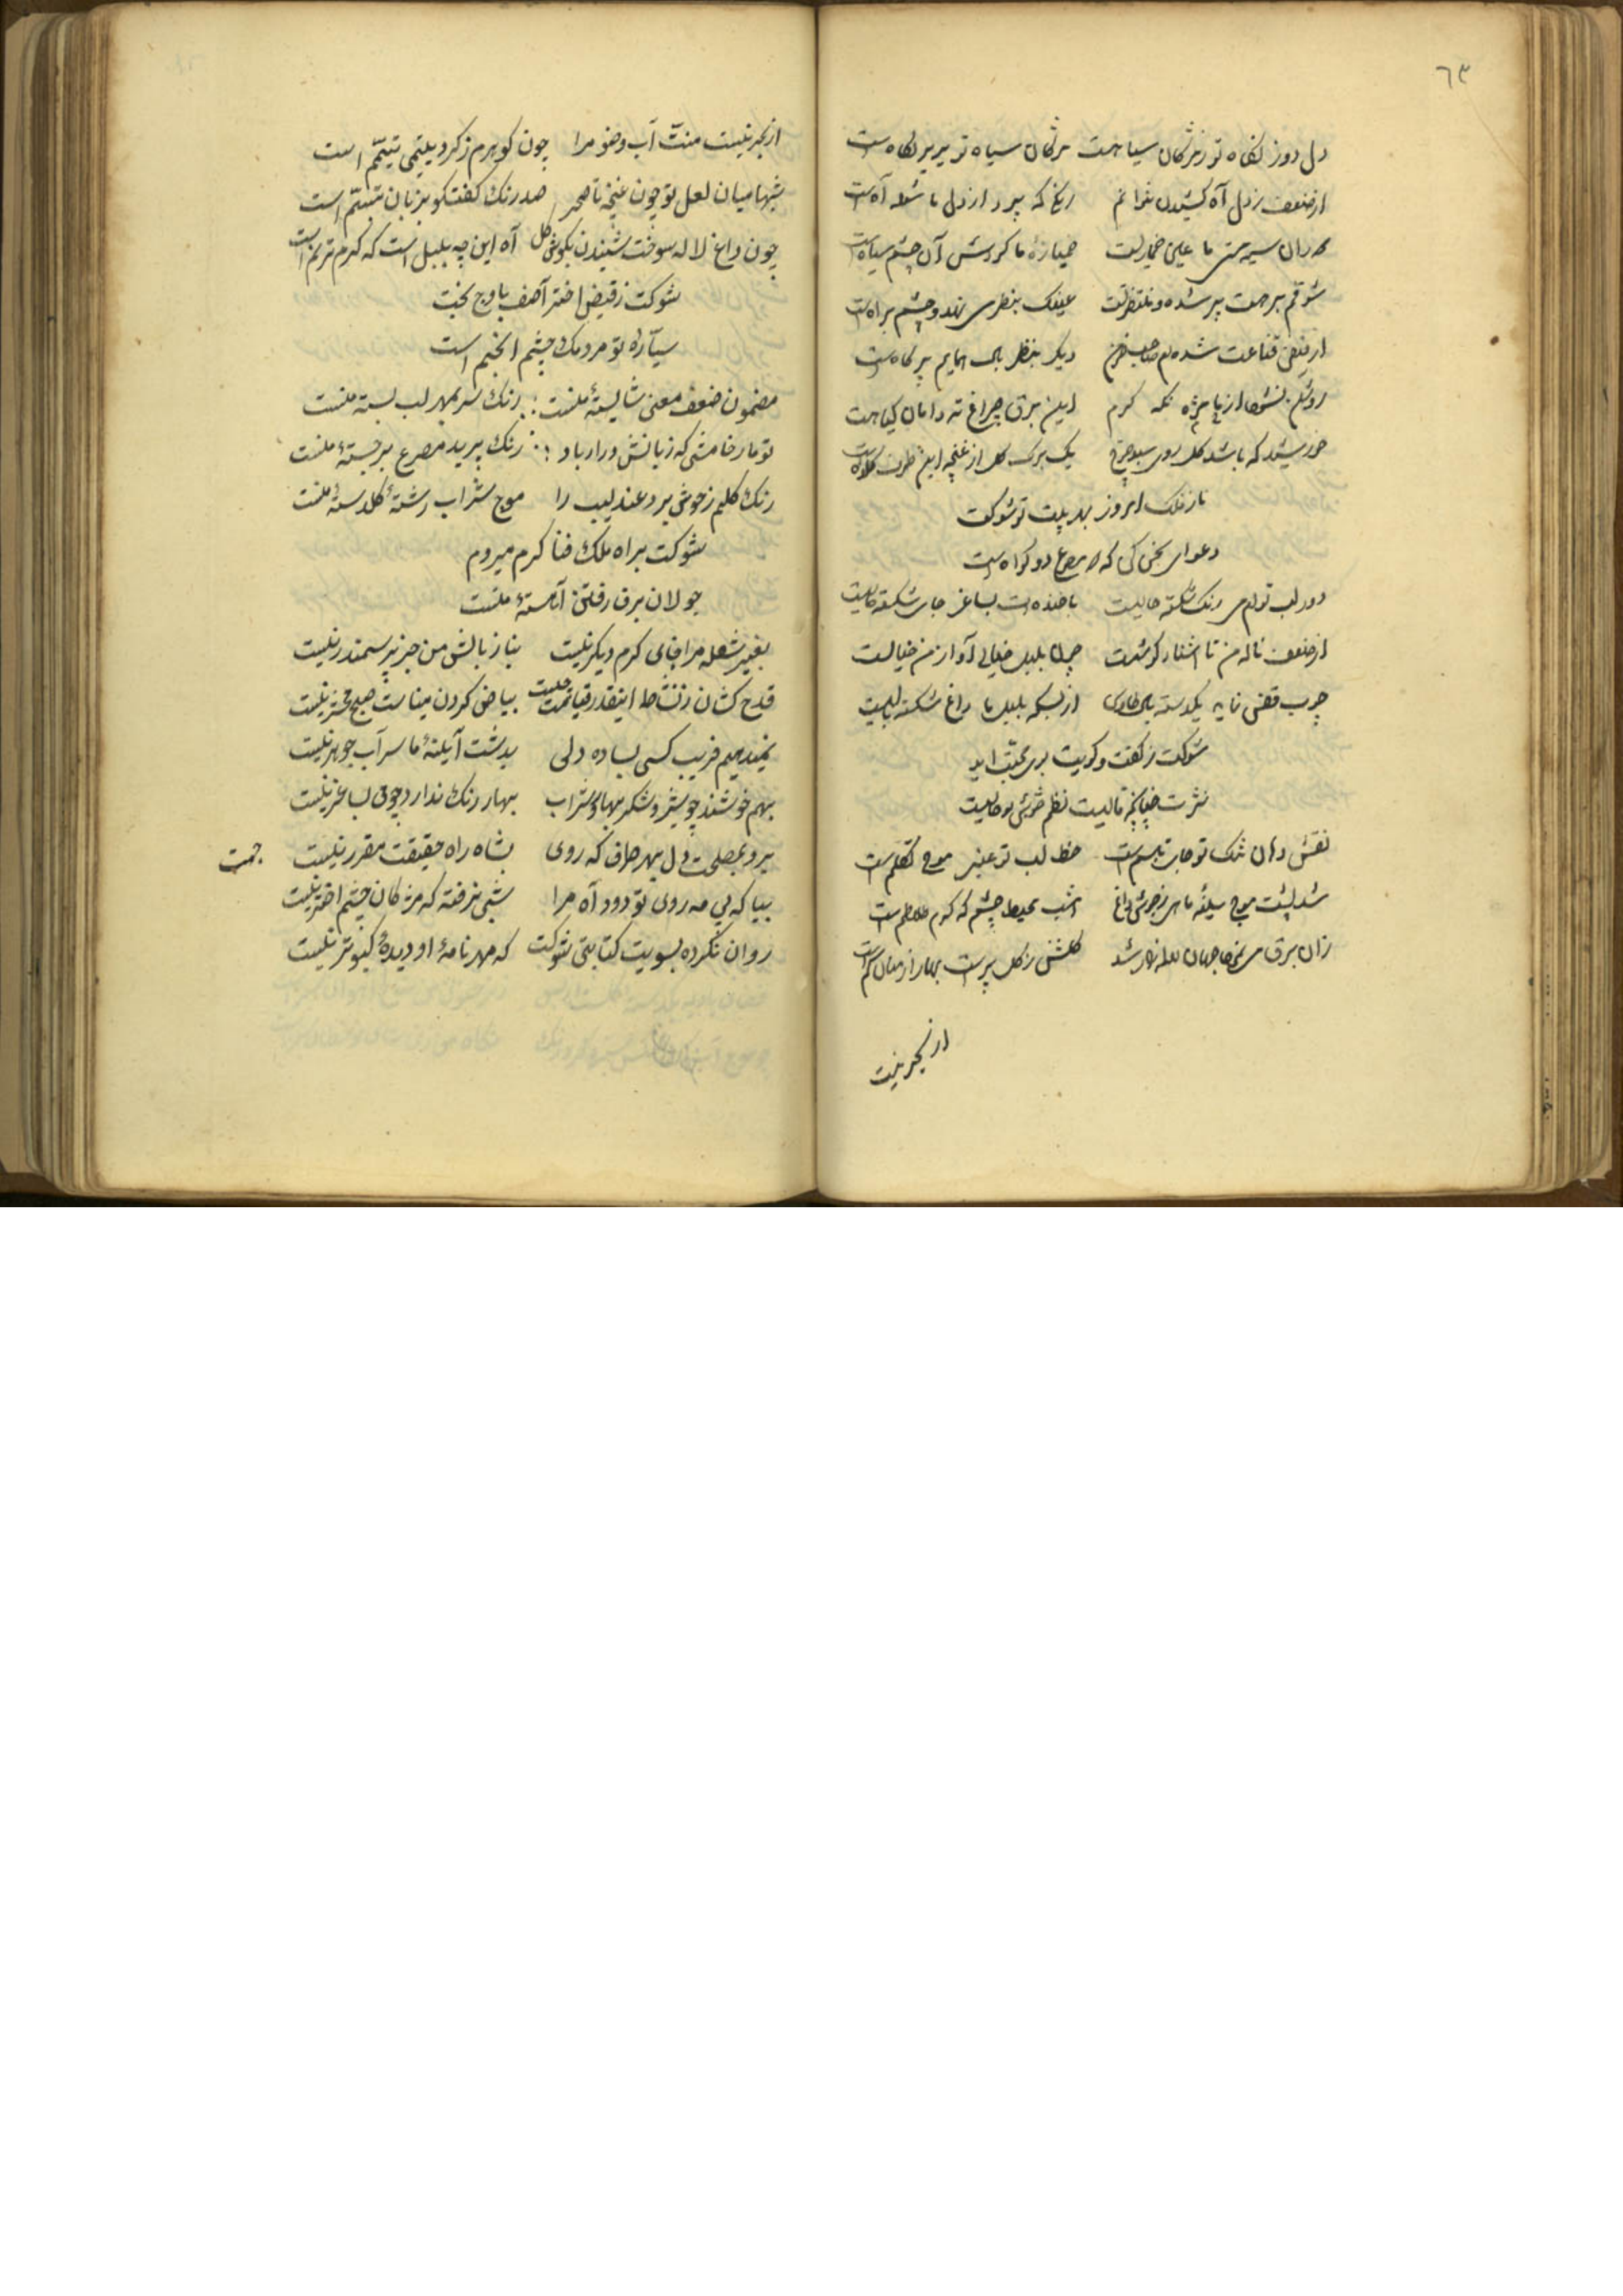 ٦٣
دل دوز نکاه تو ز مژکان سیاهست مژکان سیاه تو پر تیر نکاهست
از ضعف ز دل آه کشیدن نتوانم رنکم که پرد از دل ما شعله آهست
دوران سیه مستی ما عین خماریست خمیازهٔ ما کردش آن چشم سیاهست
شوقم بر هست پیر شده و منتظر تست عینک بنظر می نهد و چشم براهست
از فیض قناعت شده‌ام صاحب دیکر بنظر بال همایم پر کاهست
نکه کرم ایمن برق چراغ ته دامان کیاهست
خورشید که باشد کل روی سبد چرخ یک برک کل از غنچه این طرف کلاهست
ناز فلک امروز شوکت
دعوای سخن کن که دو مصرع دو کواهست
رنک شکسته خالیست با خنده‌ات بساغر جای شکسته خالیست
از ضعف ناله من تا آشنا کوشت چون بلبل خیالی آواز من خیالیست
چوب قفس نماید یکدسته بال طاوس از بسکه بلبل ما داغ شکسته بالیست
شوکت ز کفت و کویت بوی محبت آید
نثرت خیالیست نظم تو حالیست
نقش دهان تنک تو جای تبسم است خط لب تو عنبر موج تکلم است
شد پشت موج سینه ماهی ز جوش داغ امشب محیط چشم که کرم تلاطم است
زان برق می جهان لاله‌زار شد کلشن ز کل پرست بهار از میان کم است
از بحر نیست
از بحر نیست منت آب وضو مرا چون کوهرم ز کرد یتیمی تیمم است
شبها میان لعل تو چون غنچه تا سحر صد رنک کفتکو بزبان تبسم است
چون داغ لاله سوخت شنیدن بکوش کل آه این چه بلبل است که کرم ترنم است
شوکت ز فیض اختر آصف باوج بخت
سیّارهٔ تو مردمک چشم انجم است
مضمون ضعف معنی شایستهٔ منست رنک سر بمهر لب بستهٔ منست
تومار خامشی که زبانش دراز باد رنک پریده مصرع برجستهٔ منست
رنک کلیم ز خوش برد عندلیب را موج شراب رشتهٔ کلدستهٔ منست
شوکت براه ملک فنا کرم میروم
جولان برق رفتن آهستهٔ منست
بغیر شعله مرا جای کرم دیکر نیست بناز بالش من جز پر سمندر نیست
قدح کشان ز نشاط اینقدر قیامت چیست بیاض کردن میناست صبح محشر نیست
نمیدهیم فریب کسی بساده دلی بدشت آینهٔ ما سراب جوهر نیست
بهم خوشند چو شیر و شکر بهار و شراب بهار رنک ندارد چو می بساغر نیست
برو بمصلحت دل بهر طرف که روی بشاه راه حقیقت مقرر نیست
جهت
بیا که بی مه روی تو دود آه مرا شبی نرفته که مژکان چشم اختر نیست
روان نکرده بسویت کتابتی شوکت که مهر نامهٔ او دیدهٔ کبوتر نیست